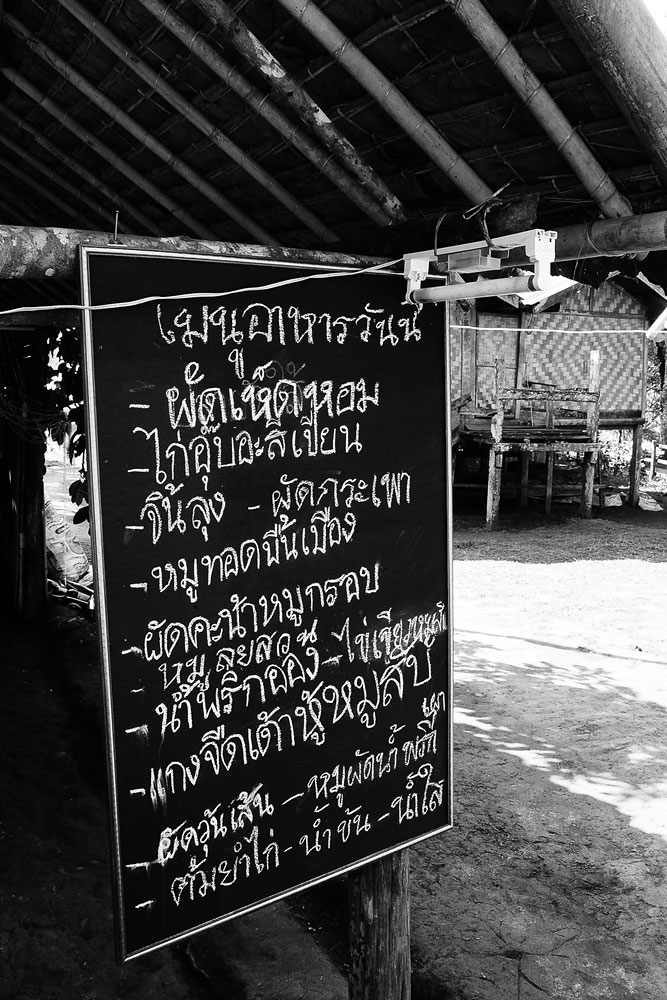 เมนูอาหารวันนี้
- ผัดเห็ดหอม
- ไก่อุ๊บอะลีเปียน
- จิ้นลุง - ผัดกระเพา
- หมูทอดพื้นเมือง
- ผัดคะน้าหมูกรอบ
- หมูลุยสวน - ไข่เจียวหมูสับ
- น้ำพริกออ่ง
- แกงจืดเต้าหู้หมูสับ
- ผัดวุ้นเส้น - หมูผัดน้ำพริกเผา
- ต้มยำไก่ - น้ำข้น - น้ำใส